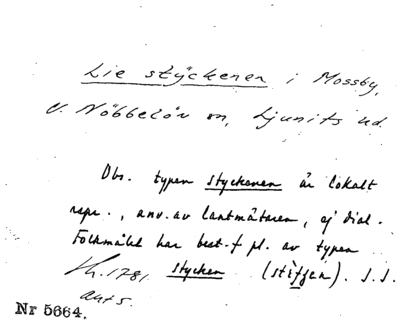 Lie styckenen i Mossby,
V. Nöbbelöv sn, Ljunits hd.
Obs. typen styckenen är lokalt
repr., anv. av lantmätaren, ej dial.
Folkmålet har best. f pl. av typen
stycken (stifjen). S.S.
Nr 5664.